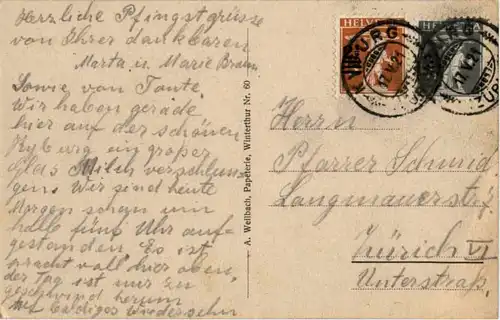 Herzliche Pfingstgrüsse
von Ihrer dankbaren
Marta u. Marie Braun
Sowie von Tante.
Wir haben gerade
hier auf der schönen
Kyburg ein großes
Glas Milch verschlun-
gen. Wir sind heute
Morgen schon um
halb fünf Uhr auf-
gestanden. Es ist
pracht voll hier oben,
der Tag ist nur zu
geschwind herum
Auf baldiges Wiedersehn
A. Weilbach, Papeterie, Winterthur Nr. 60
HELVETIA
Herrn
Pfarrer Schmid
Langmauerstr.
Zürich VI
Unterstraß.